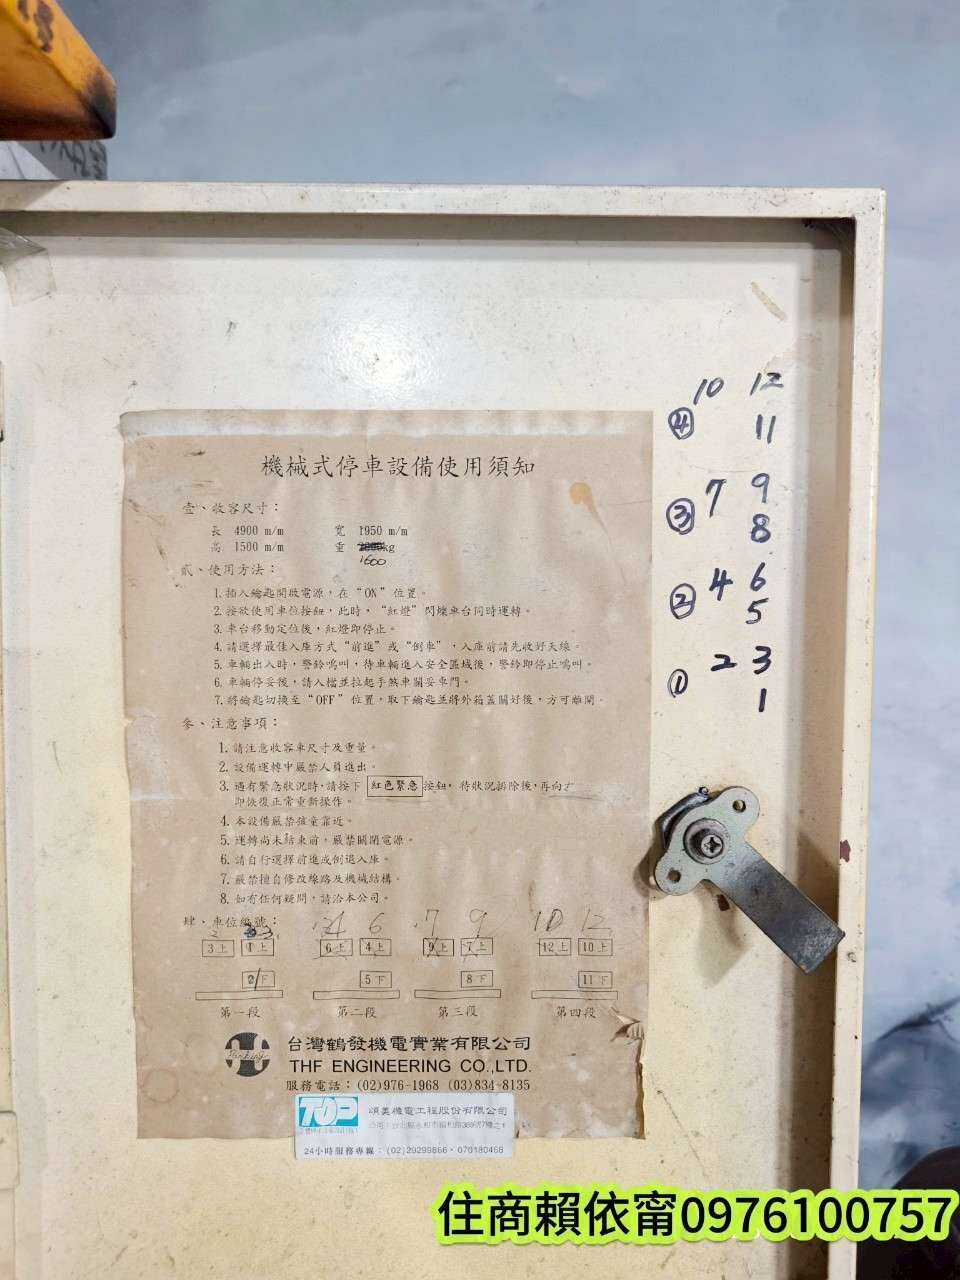 機械式停車設備使用須知
壹、收容尺寸：
長 4900 m/m 寬 1950 m/m
高 1500 m/m 重 kg
1600
貳、使用方法：
1. 插入鑰匙開啟電源，在“ON”位置。
2. 按欲使用車位按鈕，此時，“紅燈”閃爍車台同時運轉。
3. 車台移動定位後，紅燈即停止。
4. 請選擇最佳入庫方式“前進”或“倒車”，入庫前請先收好天線。
5. 車輛出入時，警鈴鳴叫，待車輛進入安全區域後，警鈴即停止鳴叫。
6. 車輛停妥後，請入檔並拉起手煞車關妥車門。
7. 將鑰匙切換至“OFF”位置，取下鑰匙並將外箱蓋關好後，方可離開。
參、注意事項：
1. 請注意收容車尺寸及重量。
2. 設備運轉中嚴禁人員進出。
3. 遇有緊急狀況時，請按下 紅色緊急 按鈕，待狀況排除後，再向
即恢復正常重新操作。
4. 本設備嚴禁孩童靠近。
5. 運轉尚未結束前，嚴禁關閉電源。
6. 請自行選擇前進或倒退入庫。
7. 嚴禁擅自修改線路及機械結構。
8. 如有任何疑問，請洽本公司。
肆、車位編號：
2 3 4 6 7 9 10 12
3上 1上 6上 4上 9上 7上 12上 10上
2下 5下 8下 11下
第一段 第二段 第三段 第四段
台灣鶴發機電實業有限公司
THF ENGINEERING CO.,LTD.
服務電話：(02)976-1968 (03)834-8135
TOP 頌美機電工程股份有限公司
24小時服務專線：(02)29299866・070180468
10 12
④ 11
7 9
③ 8
4 6
② 5
2 3
① 1
住商賴依甯0976100757